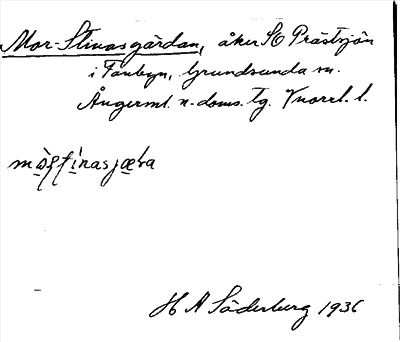 Mor-Stinasgärdan, åker SO Prästsjön
i Faubyn, Grundsunda sn.
Ångerml. n. doms. tg. Vnorrl. l.
H A Söderburg 1936